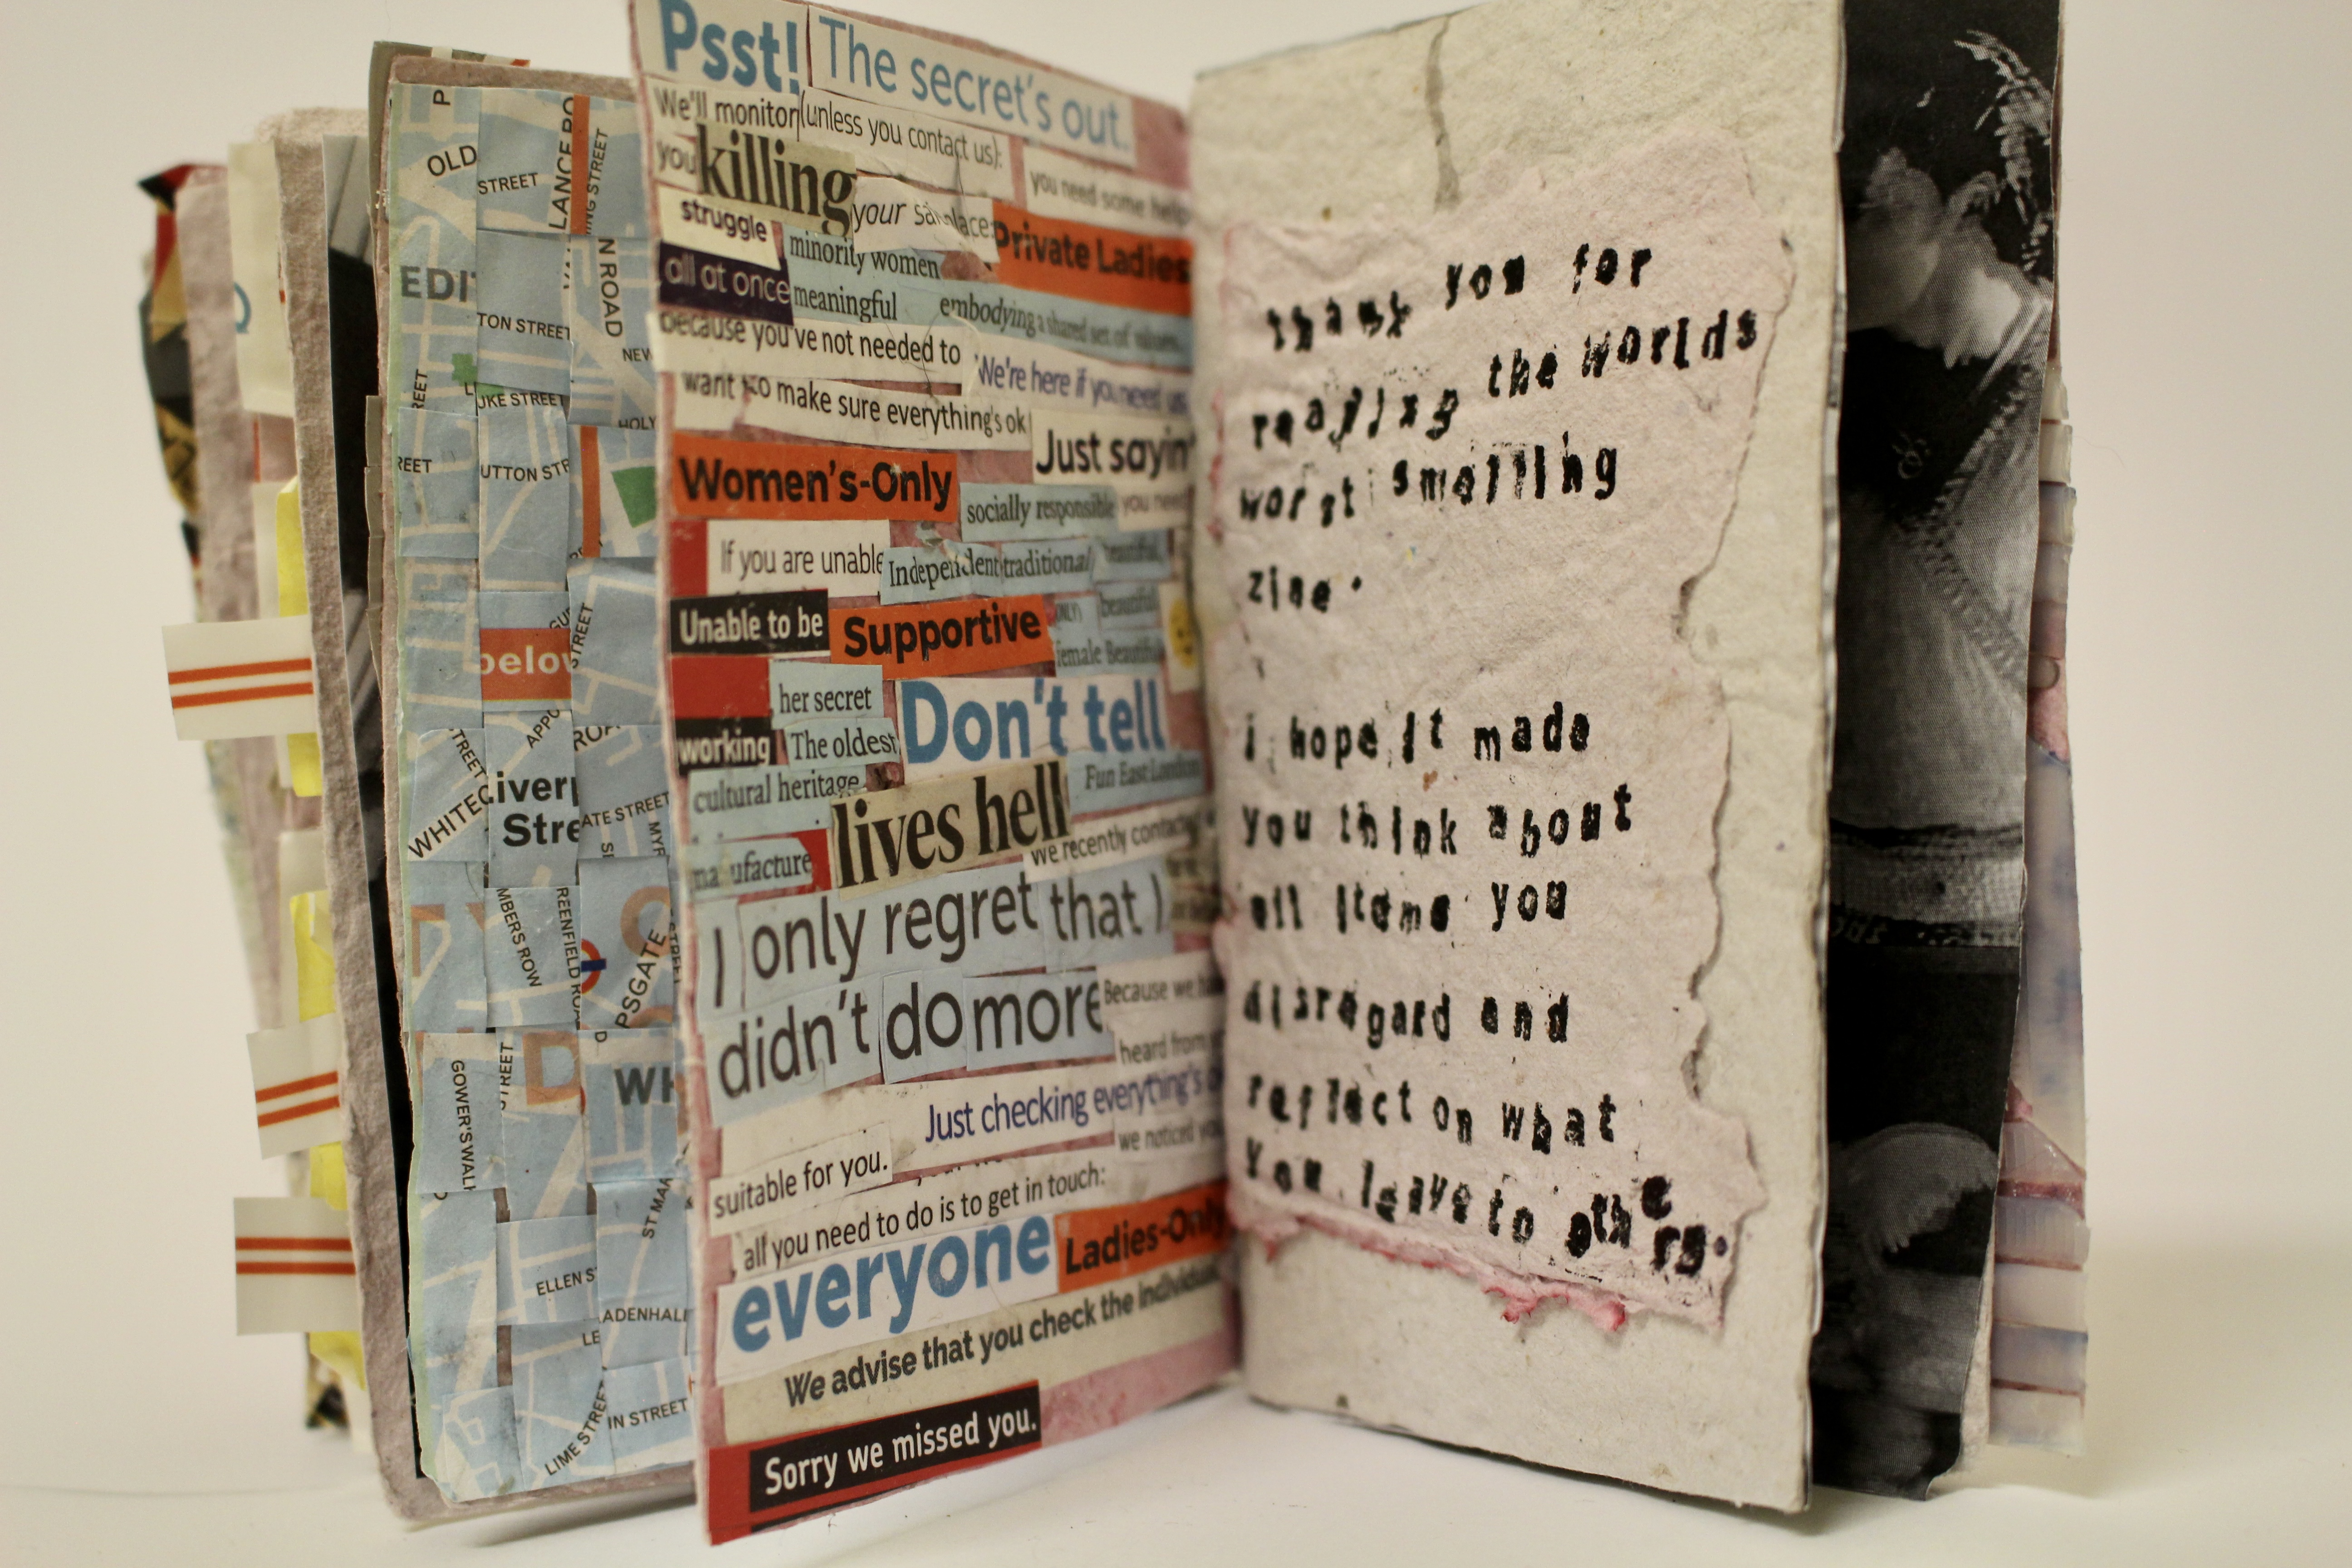 P
OLD
STREET
LANCE RO
ING STREET
EDI
N ROAD
TON STREET
NEW
REET
UKE STREET
HOLY
REET
UTTON STR
belov
STREET
APPO
ROA
STREET
WHITEC
iverp
Stre
ATE STREET
MYR
MBERS ROW
REENFIELD ROA
PSGATE
STREET
D
WH
GOWER'S WAL
ST MAR
ELLEN S
ADENHALL
LE
LIME STREE
IN STREET
Psst! The secret's out.
We'll monitor (unless you contact us):
you killing you need some help
struggle your Private Ladies
minority women
all at once meaningful embodying a shared set of values.
because you've not needed to We're here if you need us
want to make sure everything's ok
Just sayin'
Women's-Only socially responsible you need
If you are unable Independent traditional beautiful
Unable to be Supportive beautiful
female Beautiful
her secret Don't tell
working The oldest
cultural heritage Fun East London
lives hell
manufacture We recently contacted
I only regret that I
didn't do more Because we ha
heard from
Just checking everything's o
we noticed yo
suitable for you.
all you need to do is to get in touch:
everyone Ladies-Only
We advise that you check the individual
Sorry we missed you.
thank you for
reading the worlds
worst smelling
zine.
i hope it made
you think about
all items you
disregard and
reflect on what
you leave to others.